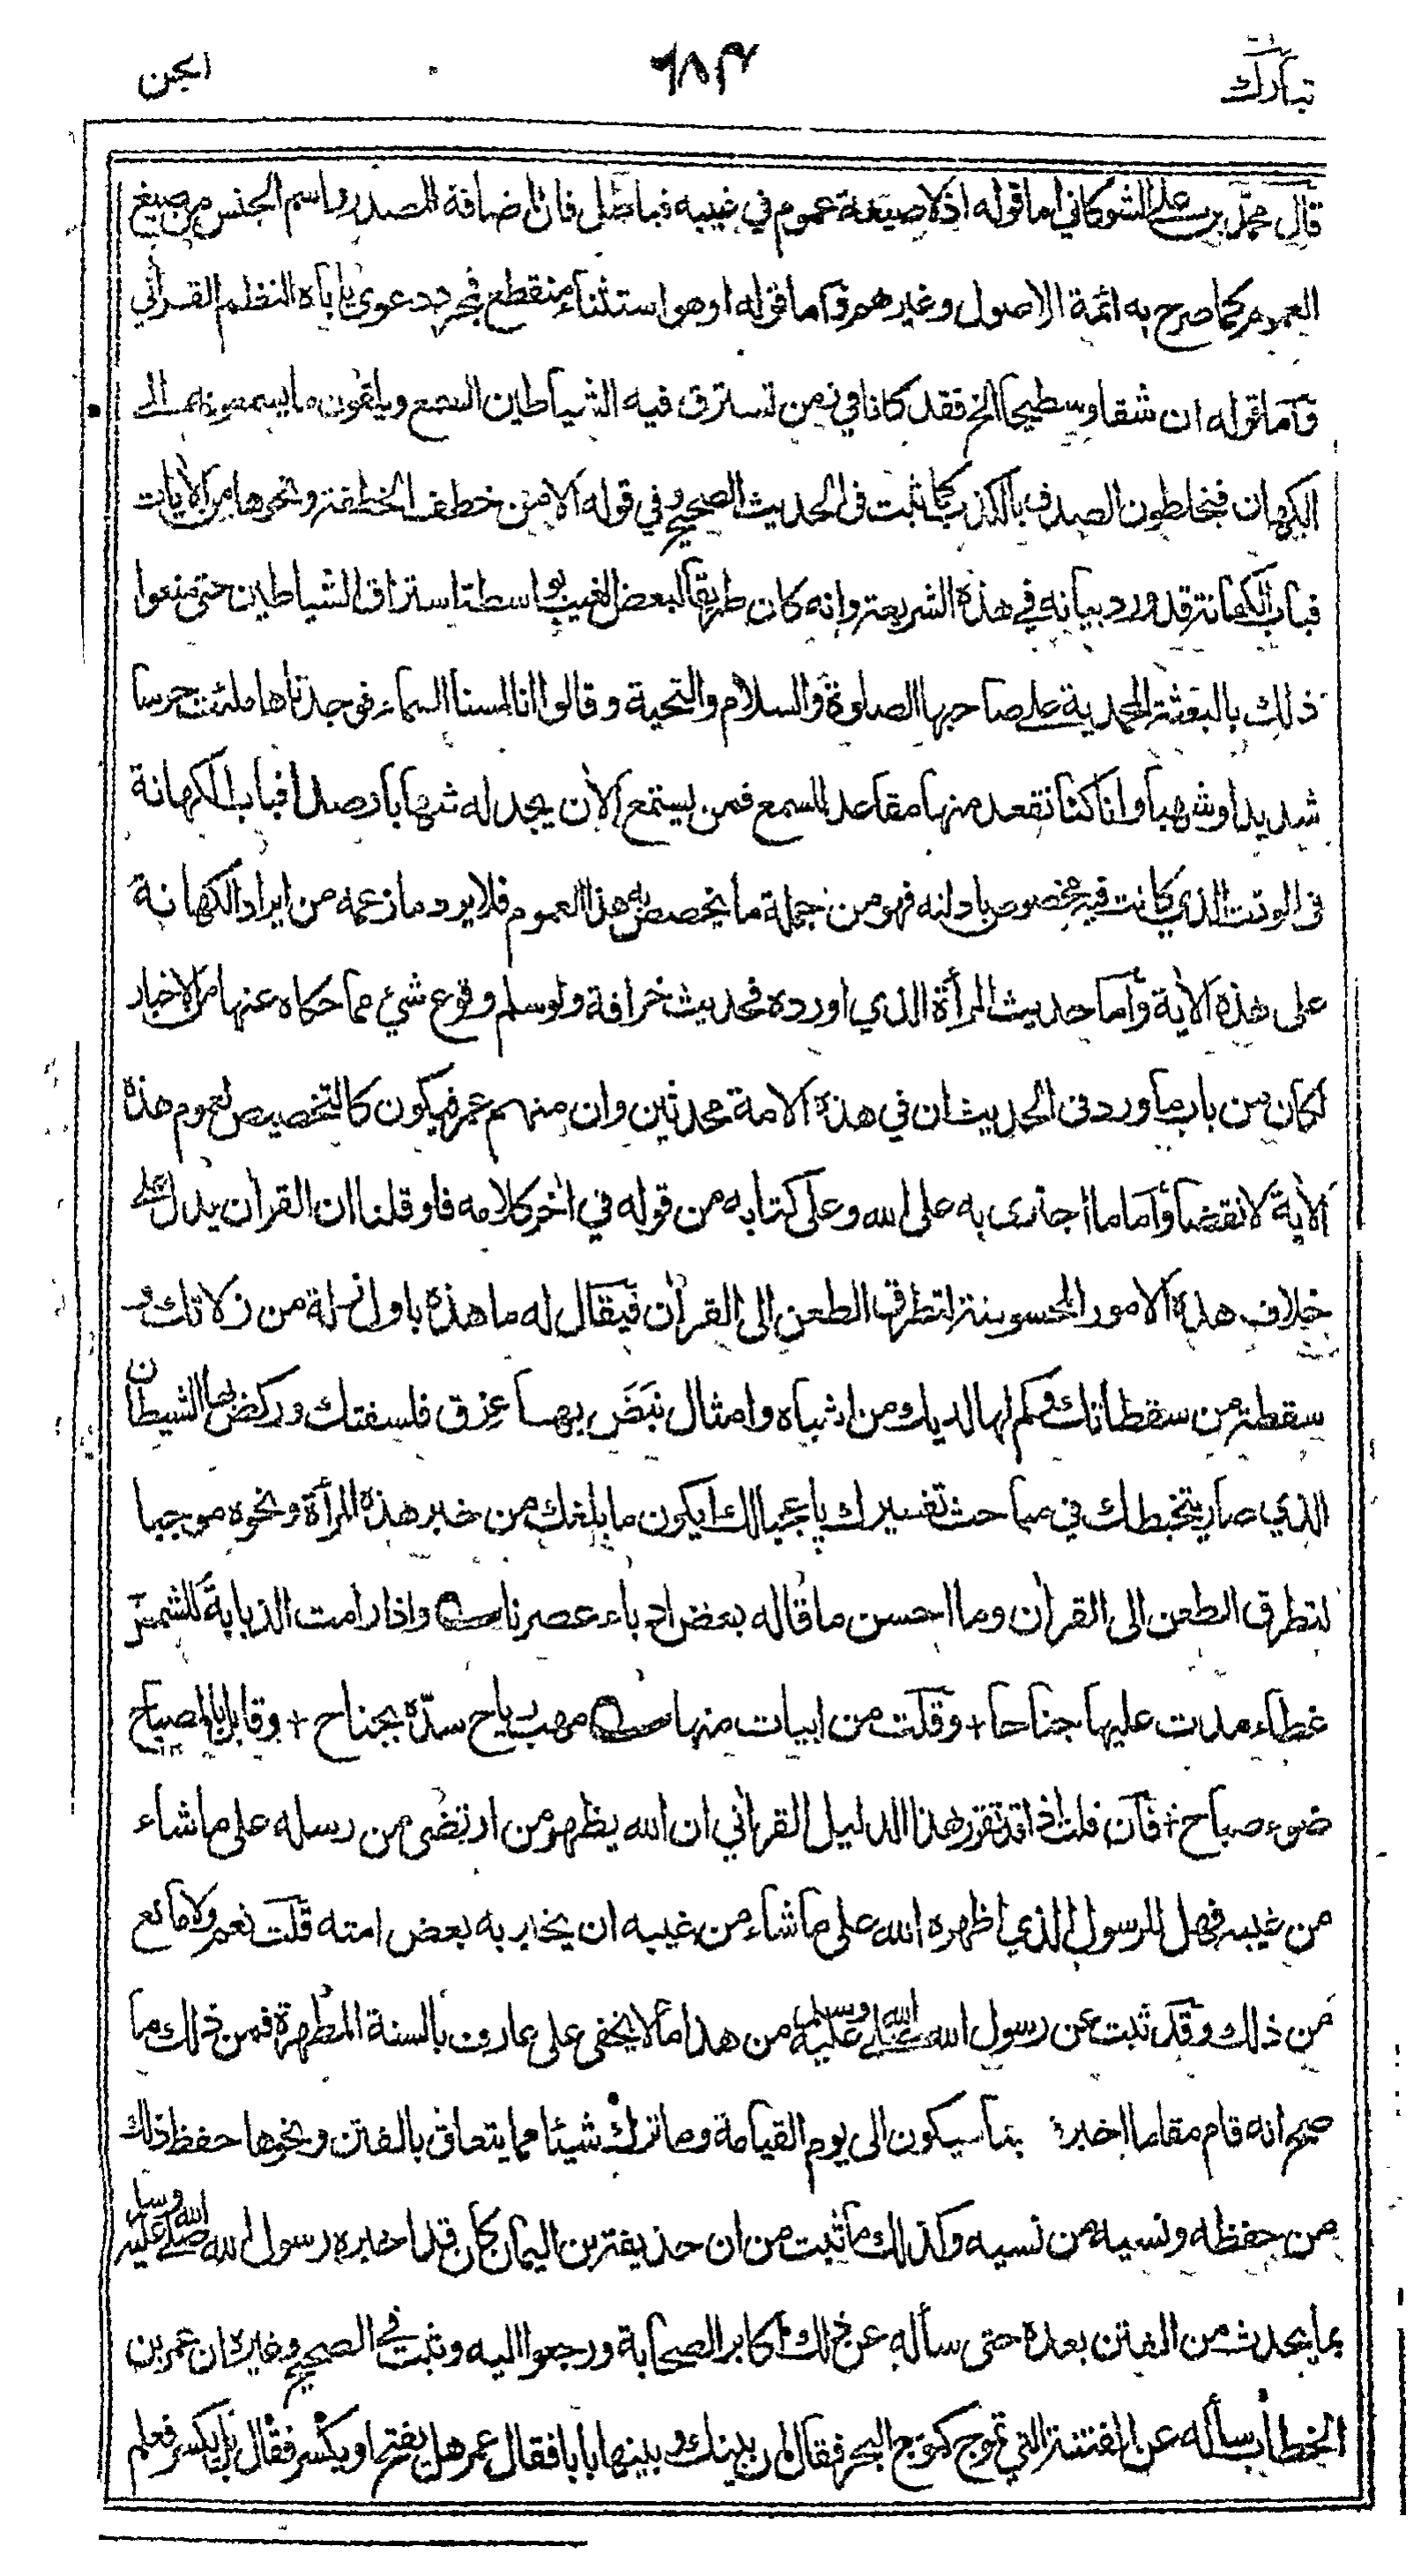 تبارك
٦٨٣
الجن
قال محمد بن علي الشوكاني اما قوله اذ لا صيغة عموم في غيبه فباطل فان اضافة المصدر واسم الجنس من صيغ
العموم كما صرح به ائمة الاصول وغيرهم وآما قوله او هو استثناء منقطع فمجرد دعوى يأباه النظم القرآني
وآما قوله ان شقا وسطيحا الخ فقد كانا في زمن تسترق فيه الشياطين السمع ويلقون ما يسمعونه الى
الكهان فيخلطون الصدق بالكذب كما ثبت في الحديث الصحيح وفي قوله الا من خطف الخطفة ونحوها من الآيات
فباب الكهانة قد ورد بيانه في هذه الشريعة وانه كان طريقا لبعض الغيب بواسطة استراق الشياطين حتى منعوا
ذلك بالبعثة المحمدية على صاحبها الصلوة والسلام والتحية وقالوا انا لمسنا السماء فوجدناها ملئت حرسا
شديدا وشهبا وانا كنا نقعد منها مقاعد للسمع فمن يستمع الآن يجد له شهابا رصدا فباب الكهانة
في الوقت الذي كانت فيه مخصوص بادلته فهو من جملة ما يخصص به هذا العموم فلا يرد ما زعمه من ايراد الكهانة
على هذه الآية وأما حديث المرأة الذي اورده فحديث خرافة ولو سلم وقوع شيء مما حكاه عنها من الاخبار
لكان من باب ما ورد في الحديث ان في هذه الامة محدثين وان منهم عمر فيكون كالتخصيص لعموم هذه
الآية لا نقضا وأما ما اجترى به على الله وعلى كتابه من قوله في آخر كلامه فلو قلنا ان القرآن يدل على
خلاف هذه الامور المحسوسة لتطرق الطعن الى القرآن فيقال له ما هذه باول زلة من زلاتك و
سقطة من سقطاتك وكم لها لديك من اشباه وامثال نبض بها عرق فلسفتك وركض بها الشيطان
الذي صار يتخبطك في مباحث تفسيرك يا عجبا لك ايكون ما بلغك من خبر هذه المرأة ونحوه موجبا
لتطرق الطعن الى القرآن وما احسن ما قاله بعض ادباء عصرنا واذا رامت الذبابة للشمس
غطاء مدت عليها جناحا + وقلت من ابيات منها مهب رياح سده بجناح + وقابل بالمصباح
ضوء صباح + فان قلت اذا قد تقرر هذا الدليل القرآني ان الله يظهر من ارتضى من رسله على ما شاء
من غيبه فهل للرسول الذي اظهره الله على ما شاء من غيبه ان يخبر به بعض امته قلت نعم ولا مانع
من ذلك وقد ثبت عن رسول الله صلى الله عليه وسلم من هذا ما لا يخفى على عارف بالسنة المطهرة فمن ذلك ما
صح انه قام مقاما اخبر بما سيكون الى يوم القيامة وما ترك شيئا مما يتعلق بالفتن ونحوها حفظ ذلك
من حفظه ونسيه من نسيه وكذلك ما ثبت من ان حذيفة بن اليمان كان قد اخبره رسول الله صلى الله عليه وسلم
بما يحدث من الفتن بعده حتى سأله عن ذلك اكابر الصحابة ورجعوا اليه وثبت في الصحيح وغيره ان عمر بن
الخطاب سأله عن الفتنة التي تموج كموج البحر فقال ان بينك وبينها بابا فقال عمر هل يفتح او يكسر فقال بل يكسر فعلم